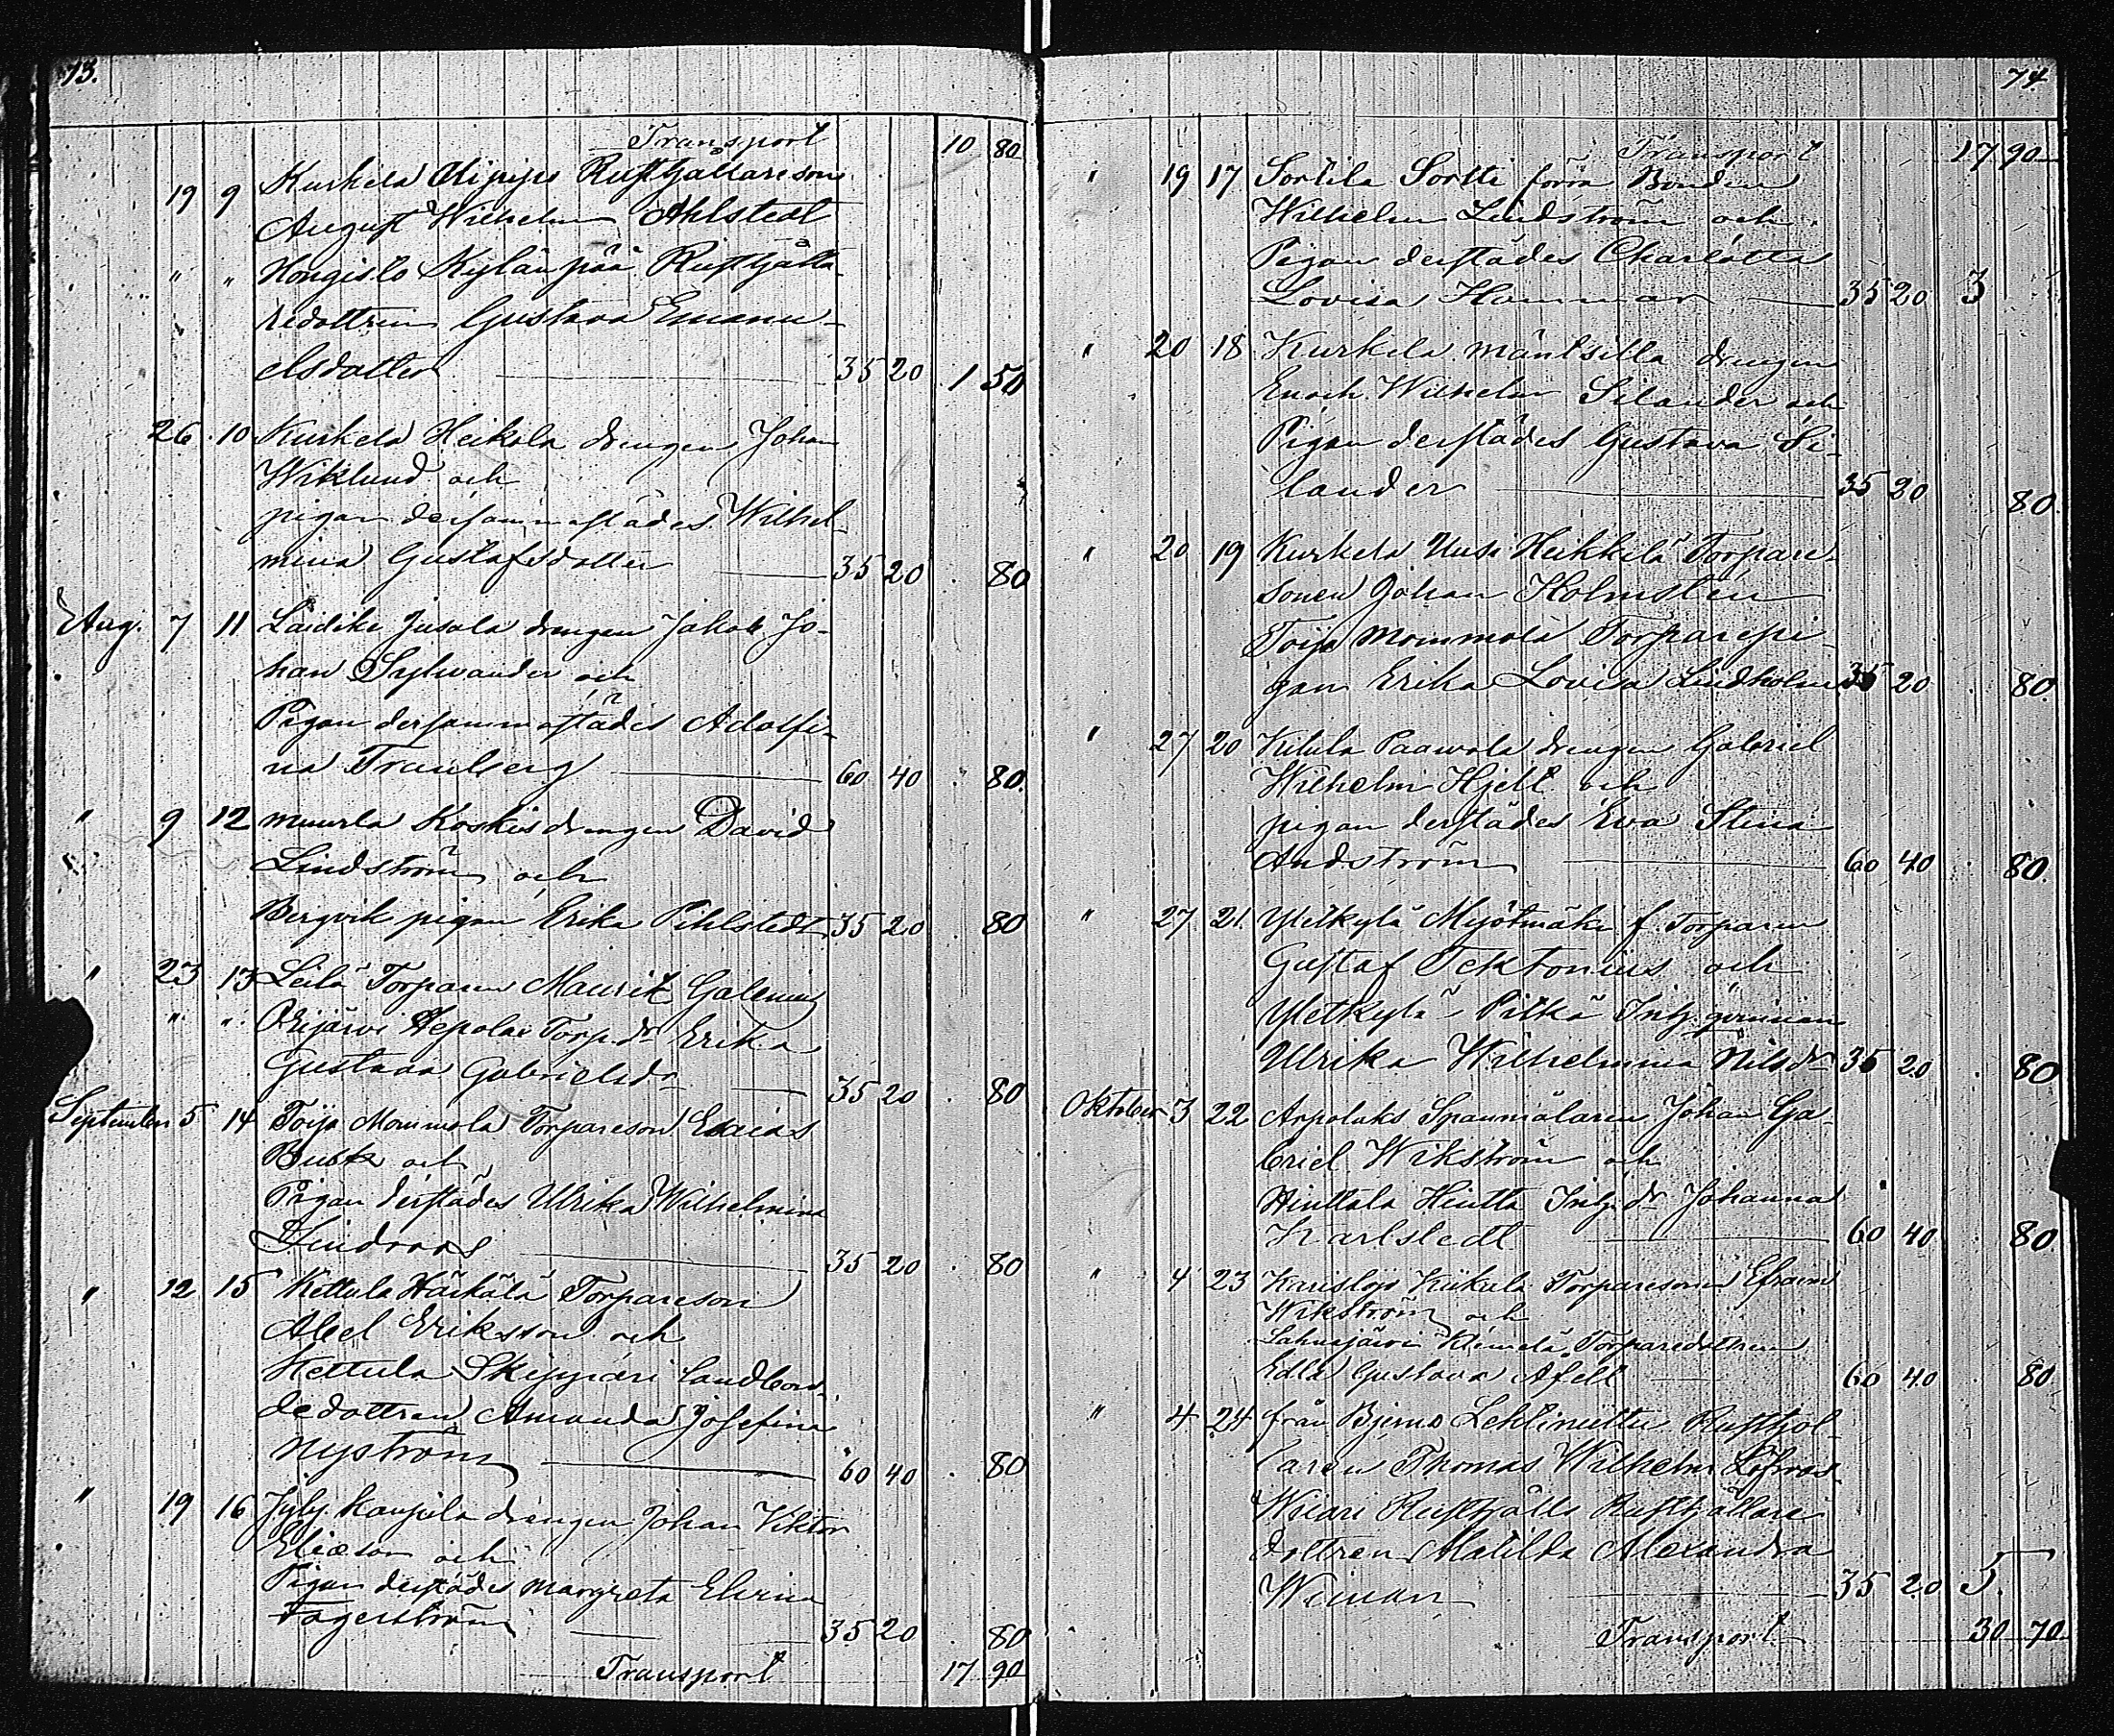 73.
Transport 10 80
19 9 Kurkela Rusthållareson
August Wilhelm Ahlstedt
" " Hongisto Kylänpää Rusthålla-
redottren Gustava Emanu-
elsdotter 35 20 1 50
26 10 Kurkela Heikola drengen Johan
Wiklund och
pigan dersammastädes Wilhel-
mina Gustafsdotter 35 20 . 80
Aug. 7 11 Laidike Jusola drengen Jakob Jo-
han Sylwander och
Pigan dersammastädes Adolfi-
na Tranberg 60 40 . 80.
" 9 12 Muurla Koskis drengen David
Lindström och
Bergvik pigan Erika Pihlstedt 35 20 . 80
" 23 13 Leilä Torparen Maurit Galenius
" " Orijärvi Hepolax Torp.dr Erika
Gustava Gabrielsdr 35 20 . 80
September 5 14 Toija Mommola Torpareson Esaias
Busk och
Pigan derstädes Ulrika Wilhelmina
Lindroos 35 20 . 80
" 12 15 Kettula Härkälä Torpareson
Abel Eriksson och
Kettula Skippari Landbon-
dedottren Amanda Josefina
Nyström 60 40 . 80
" 19 16 drengen Johan Viktor
Eliæson och
Pigan derstädes Margreta Elvina
Fagerström 35 20 . 80
Transport 17 90
74.
Transport 17 90
" 19 17 Sortila Sortti förra Bonden
Wilhelm Lindström och
Pigan derstädes Charlotta
Lovisa Hammar 35 20 3
" 20 18 Kurkela Mäntsilla drengen
Enoch Wilhelm Silander och
Pigan derstädes Gustava Si-
lander 35 20 80.
" 20 19 Kurkela Uusi Heikkilä Torpare-
sonen Johan Holmstén
Toija Mommola Torparepi-
gan Erika Lovisa Lindholm 35 20 . 80.
" 27 20 Kitula Paawola drengen Gabriel
Wilhelm Hjelt och
pigan derstädes Eva Stina
Andström 60 40 . 80.
" 27 21. Yletkylä Myötmäki f. Torparen
Gustaf Tektonius och
Yletkylä Pitkä Inh. qvinnan
Ulrika Wilhelmina Nilsdr 35 20 . 80
Oktober 3 22 Arpoluks Johan Ga-
briel Wikström och
Hintta Inh. dr Johanna
Karlstedt 60 40 . 80.
" 4 23 Karislojo Torparesonen Efraim
Wikström och
Lahnajärvi Klemelä Torparedottren
Edla Gustava Afelt 60 40 . 80.
" 4 24 från Bjerno Rusthål-
laren Thomas Wilhelm
Wiari Rusthålls Rusthållare-
dottren Matilda Alexandra
Weman 35 20 5.
Transport 30 70.